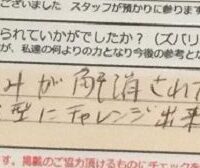 ございました スタッフが預かりに参ります
られていかがでしたか？（ズバリ
が、私達の何よりの力となり今後の参考と
みが解消され
型にチャレンジ出来
す。掲載のご協力頂けるものにチェックを